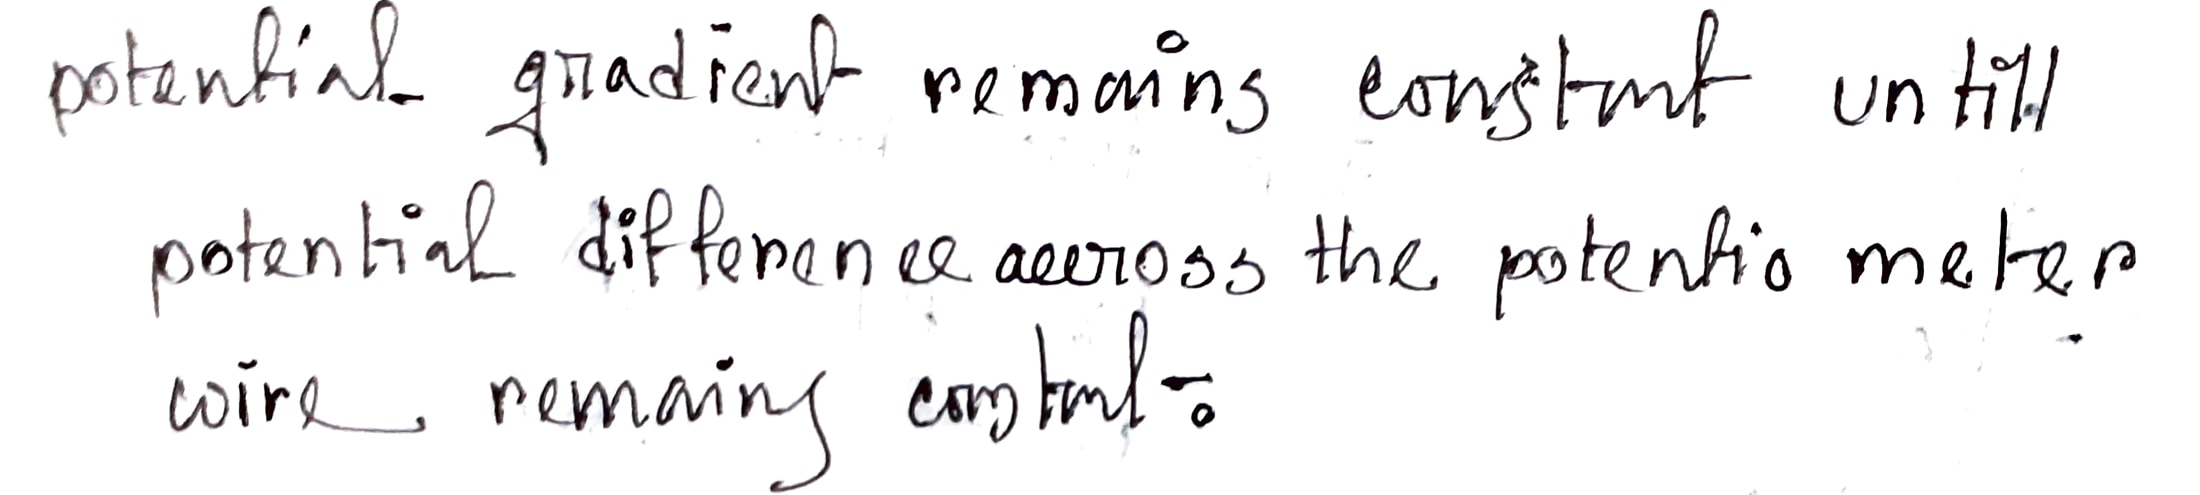 potential gradient remains constant untill
potential difference accross the potentio meter
wire remains constant.